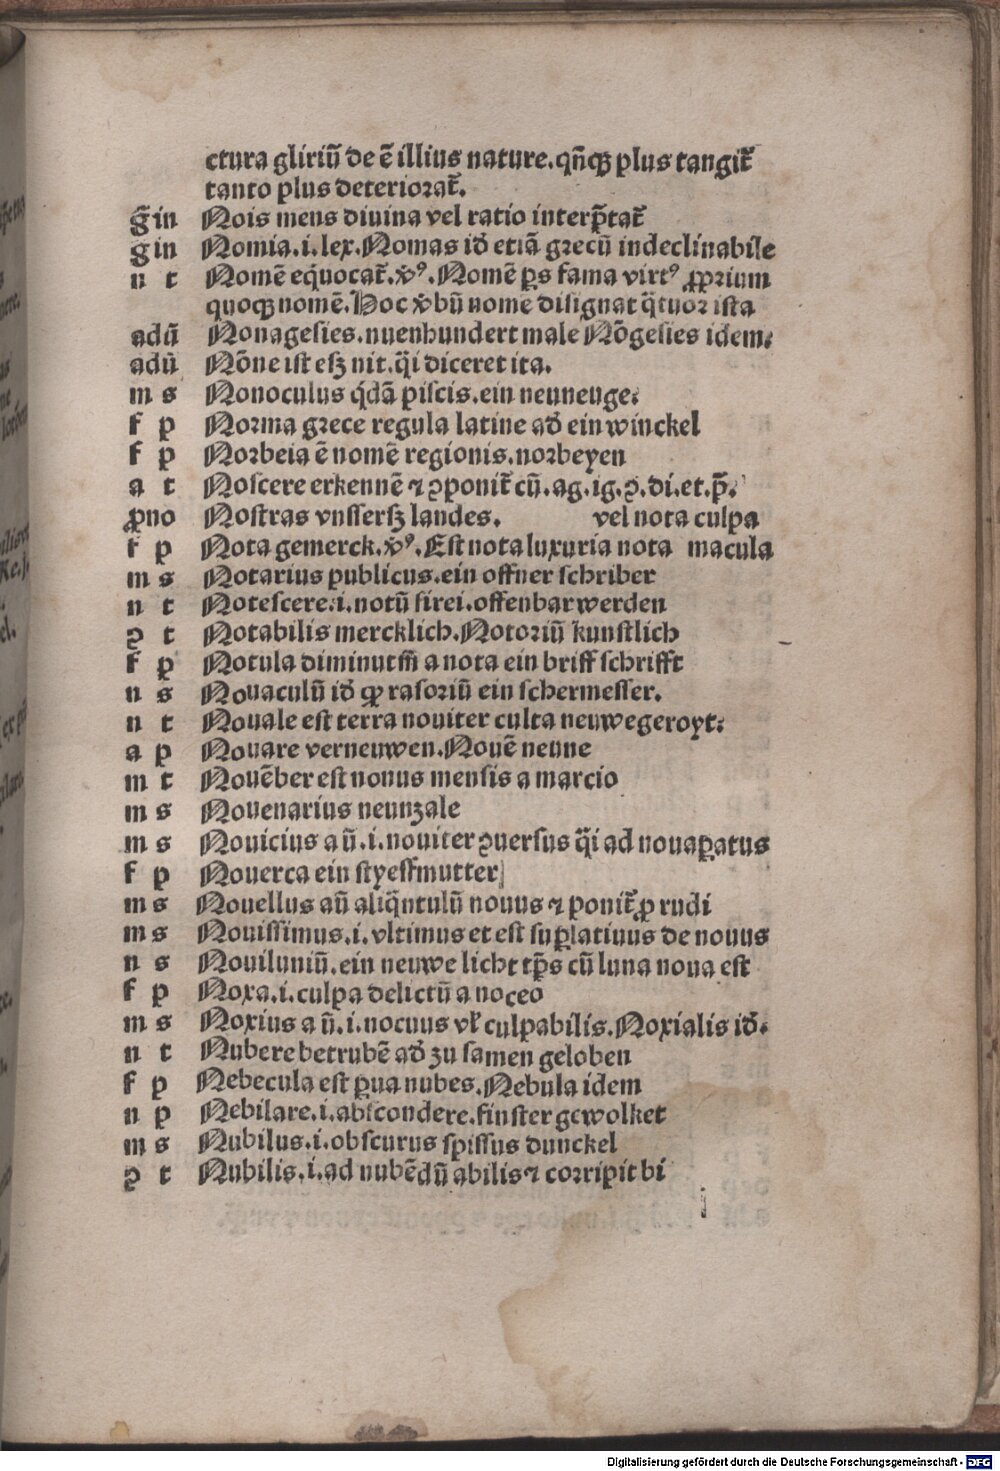 ctura gliriū de ē illius nature. qn̄cqꝫ plus tangit᷑
tanto plus deteriorat᷑.
g̃ in Nois mens diuina vel ratio interp̄tat᷑
g in Nomia.i.lex.Nomas id̄ etiā grecū indeclinabile
n t Nomē equocat᷑.v̾ꝰ.Nomē p̄s fama virtꝰ ꝓprium
quoqꝫ nomē.Hoc v̾bū nome disignat q̄tuor ista
adū Nonagesies.nuenhundert male Nōgesies idem.
adū Nōne ist esꝫ nit.q̄i diceret ita.
m s Nonoculus q̄dā piscis.ein neuneuge.
f p Norma grece regula latine ad̄ ein winckel
f p Norbeia ē nomē regionis.norbeyen
a t Noscere erkennē ⁊ ꝯponit᷑ cū.ag.ig.ꝯ.di.et.p̄.
ꝓno Nostras vnsserſꝫ landes. vel nota culpa
f p Nota gemerck.v̾ꝰ.Est nota luxuria nota macula
m s Notarius publicus.ein offner schriber
n t Notescere.i.notū firei.offenbar werden
ꝯ t Notabilis mercklich.Notoriū kunstlich
f p Notula diminutm̄ a nota ein briff schrifft
n s Nouaculū id̄ qp̄ rasoriū ein schermesser.
n t Nouale est terra nouiter culta neuwegeroyt.
a p Nouare verneuwen.Nouē neune
m t Nouēber est nonus mensis a marcio
m s Nouenarius neunzale
m s Nouicius a ū.i.nouiter ꝯuersus q̄i ad noua ꝑatus
f p Nouerca ein styeffmutter
m s Nouellus aū aliq̄ntulū nouus ⁊ ponit᷑ ꝓ rudi
m s Nouissimus.i.vltimus et est suꝑlatiuus de nouus
n s Nouiluniū.ein neuwe licht tp̄s cū luna noua est
f p Noxa.i.culpa delictū a noceo
m s Noxius a ū.i.nocuus vl̾ culpabilis.Noxialis id̄.
n t Nubere betrubē ad̄ zu samen geloben
f p Nebecula est ꝑua nubes.Nebula idem
n p Nebilare.i.abscondere.finster gewolket
m s Nubilus.i.obscurus spissus dunckel
ꝯ t Nubilis.i.ad nubēdū abilis ⁊ corripit bi
Digitalisierung gefördert durch die Deutsche Forschungsgemeinschaft - DFG